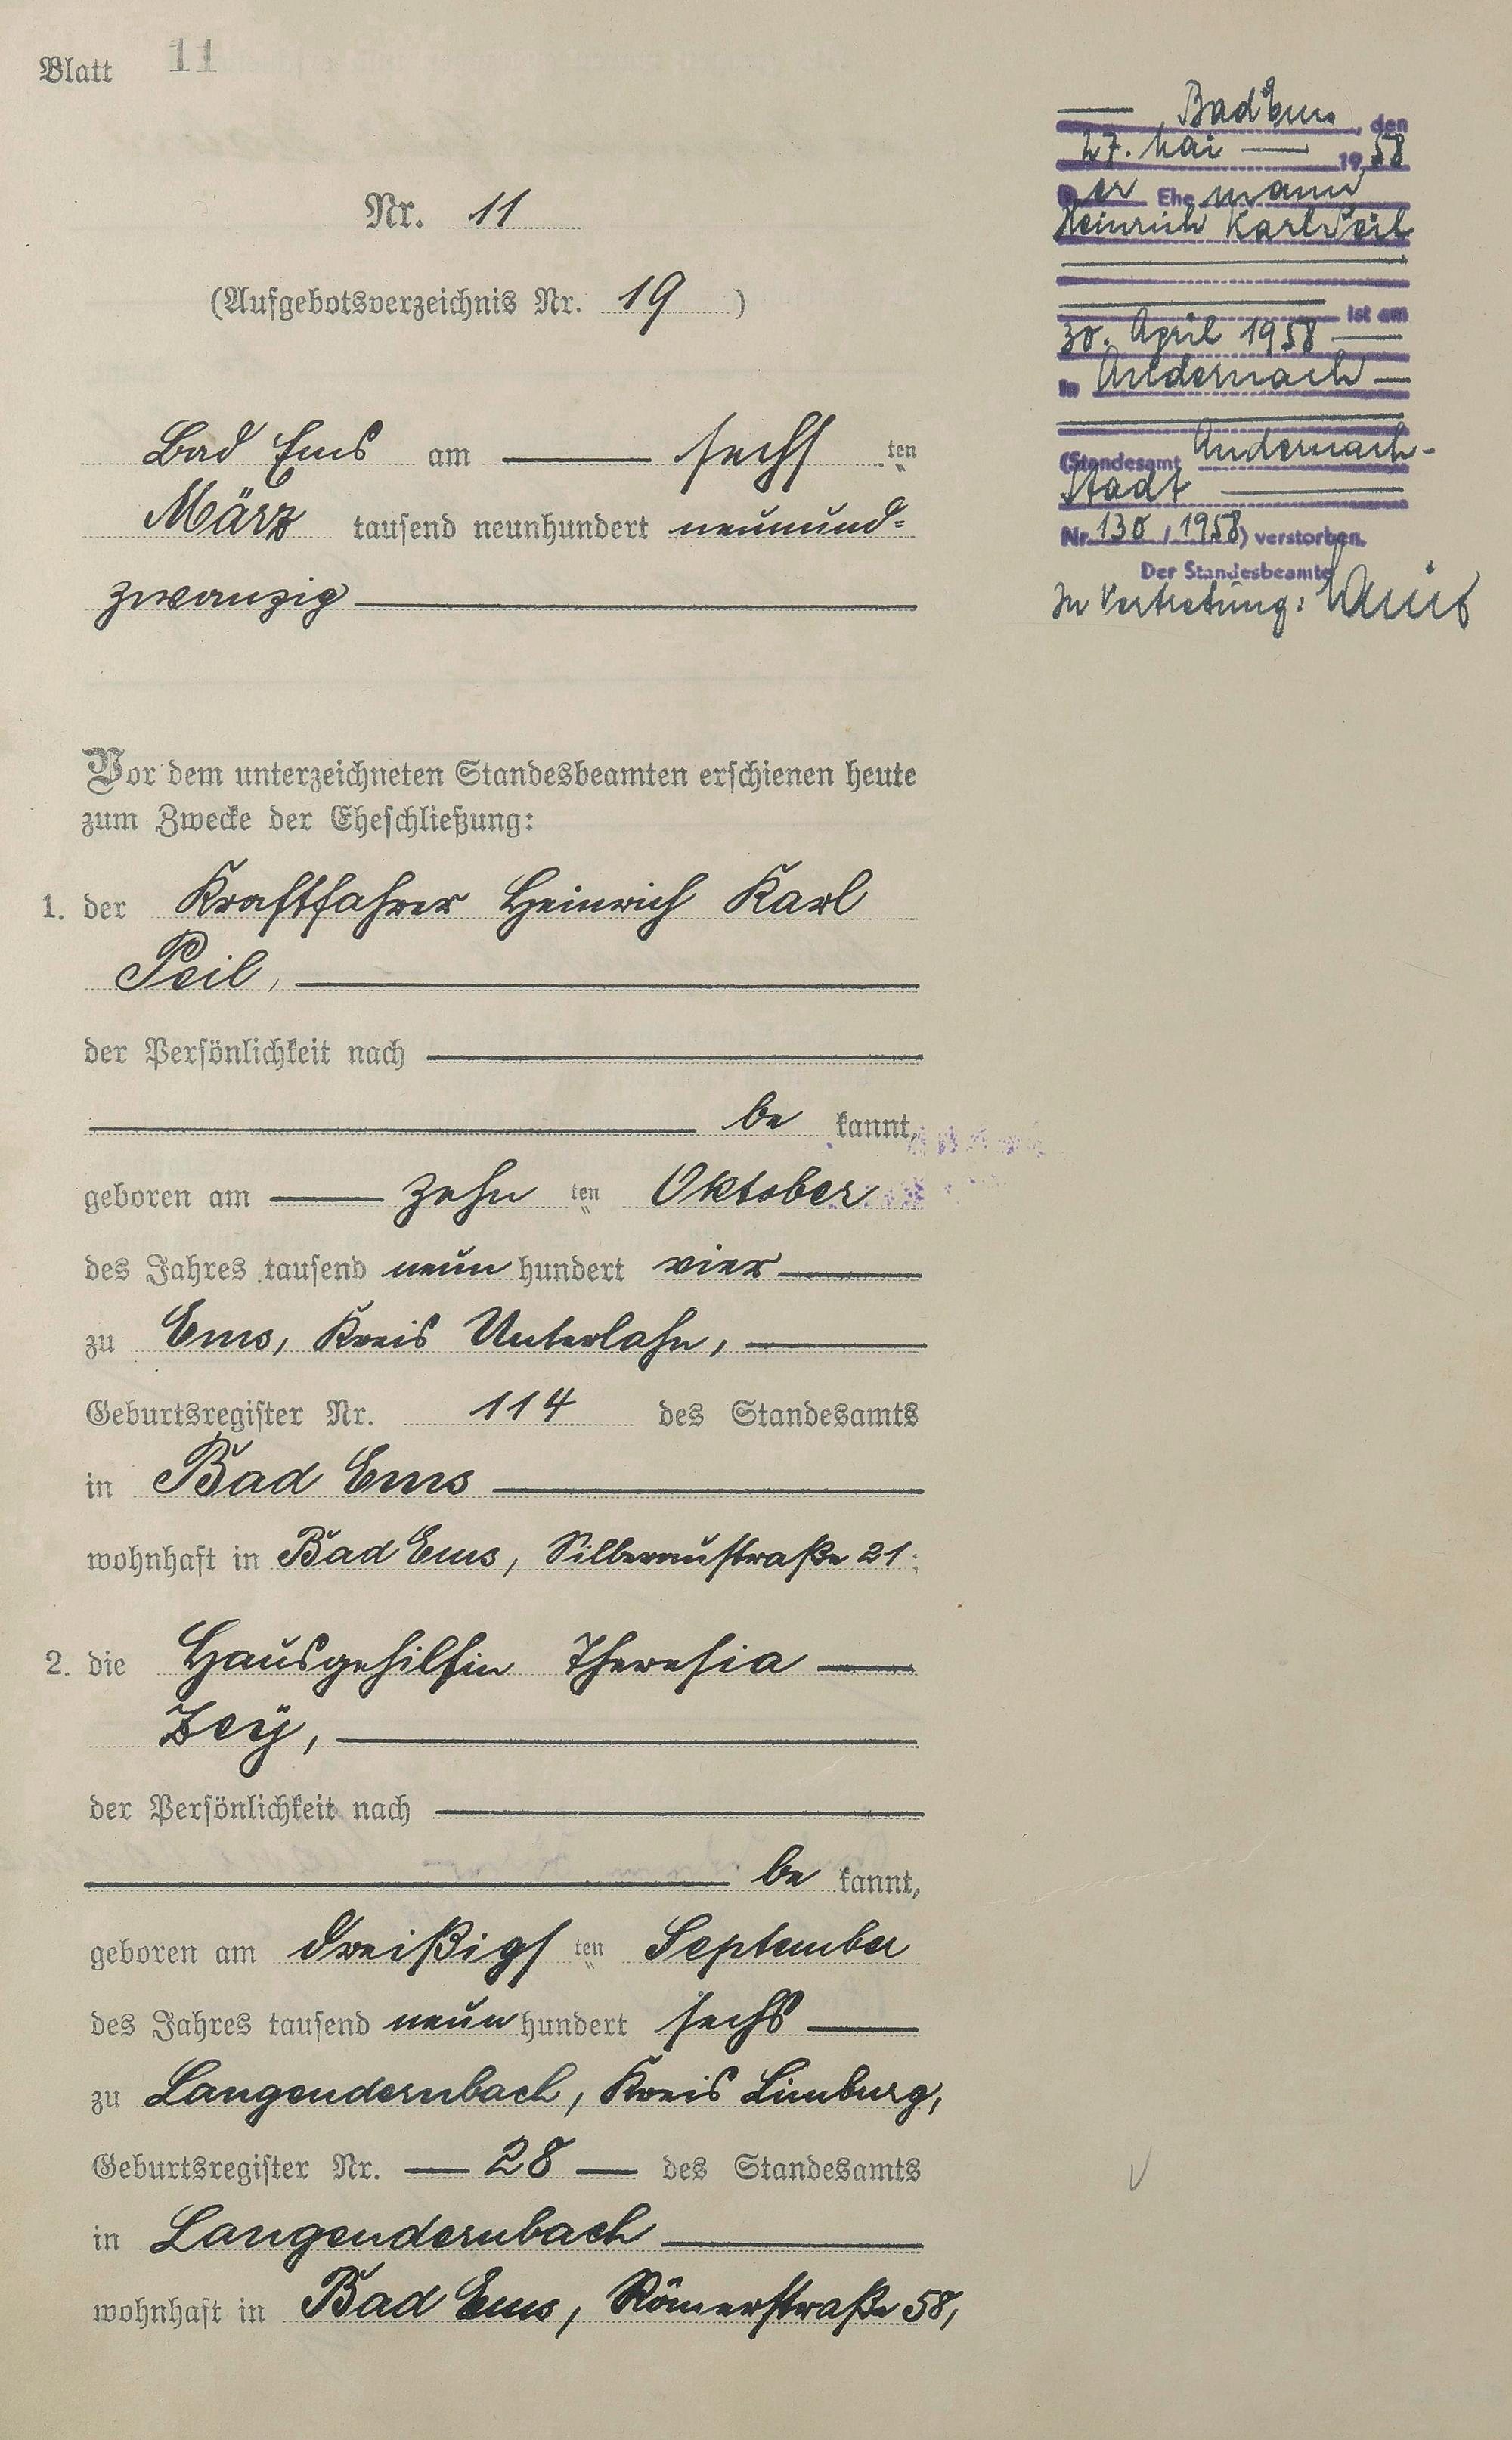 Blatt 11
Nr. 11
(Aufgebotsverzeichnis Nr. 19 )
Bad Ems am sechs ten
März tausend neunhundert neunund-
zwanzig
Vor dem unterzeichneten Standesbeamten erschienen heute
zum Zwecke der Eheschließung:
1. der Kraftfahrer Heinrich Karl
Peil,
der Persönlichkeit nach
be kannt,
geboren am zehn ten Oktober
des Jahres tausend neun hundert vier
zu Ems, Kreis Unterlahn,
Geburtsregister Nr. 114 des Standesamts
in Bad Ems
wohnhaft in Bad Ems, Silberaustraße 21;
2. die Hausgehilfin Theresia
Zey,
der Persönlichkeit nach
be kannt,
geboren am dreißigs ten September
des Jahres tausend neun hundert sechs
zu Langendernbach, Kreis Limburg,
Geburtsregister Nr. 28 des Standesamts
in Langendernbach
wohnhaft in Bad Ems, Römerstraße 58,
Bad Ems, den
27. Mai 1958
Der Ehemann
Heinrich Karl Peil
ist am
30. April 1958
in Andernach
(Standesamt Andernach-
Stadt
Nr. 130 / 1958) verstorben.
Der Standesbeamte
In Vertretung: